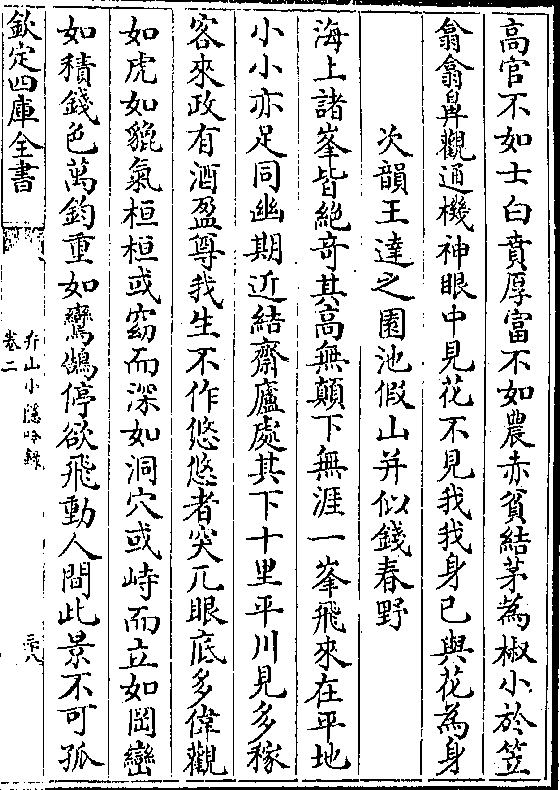 高官不如士白賁厚富不如農赤貧結茅為椒小於笠
翕翕鼻觀通機神眼中見花不見我我身已與花為身
次韻王達之園池假山并似錢春野
海上諸峯皆絶竒其高無顛下無涯一峯飛來在平地
小小亦足同幽期近結齋廬處其下十里平川見多稼
客來政有酒盈尊我生不作悠悠者突兀眼底多偉觀
如虎如貔氣桓桓或窈而深如洞穴或峙而立如岡巒
如積錢色萬鈞重如鸞鵠停欲飛動人間此景不可孤
欽定四庫全書
弁山小隱吟録
卷二
三十八